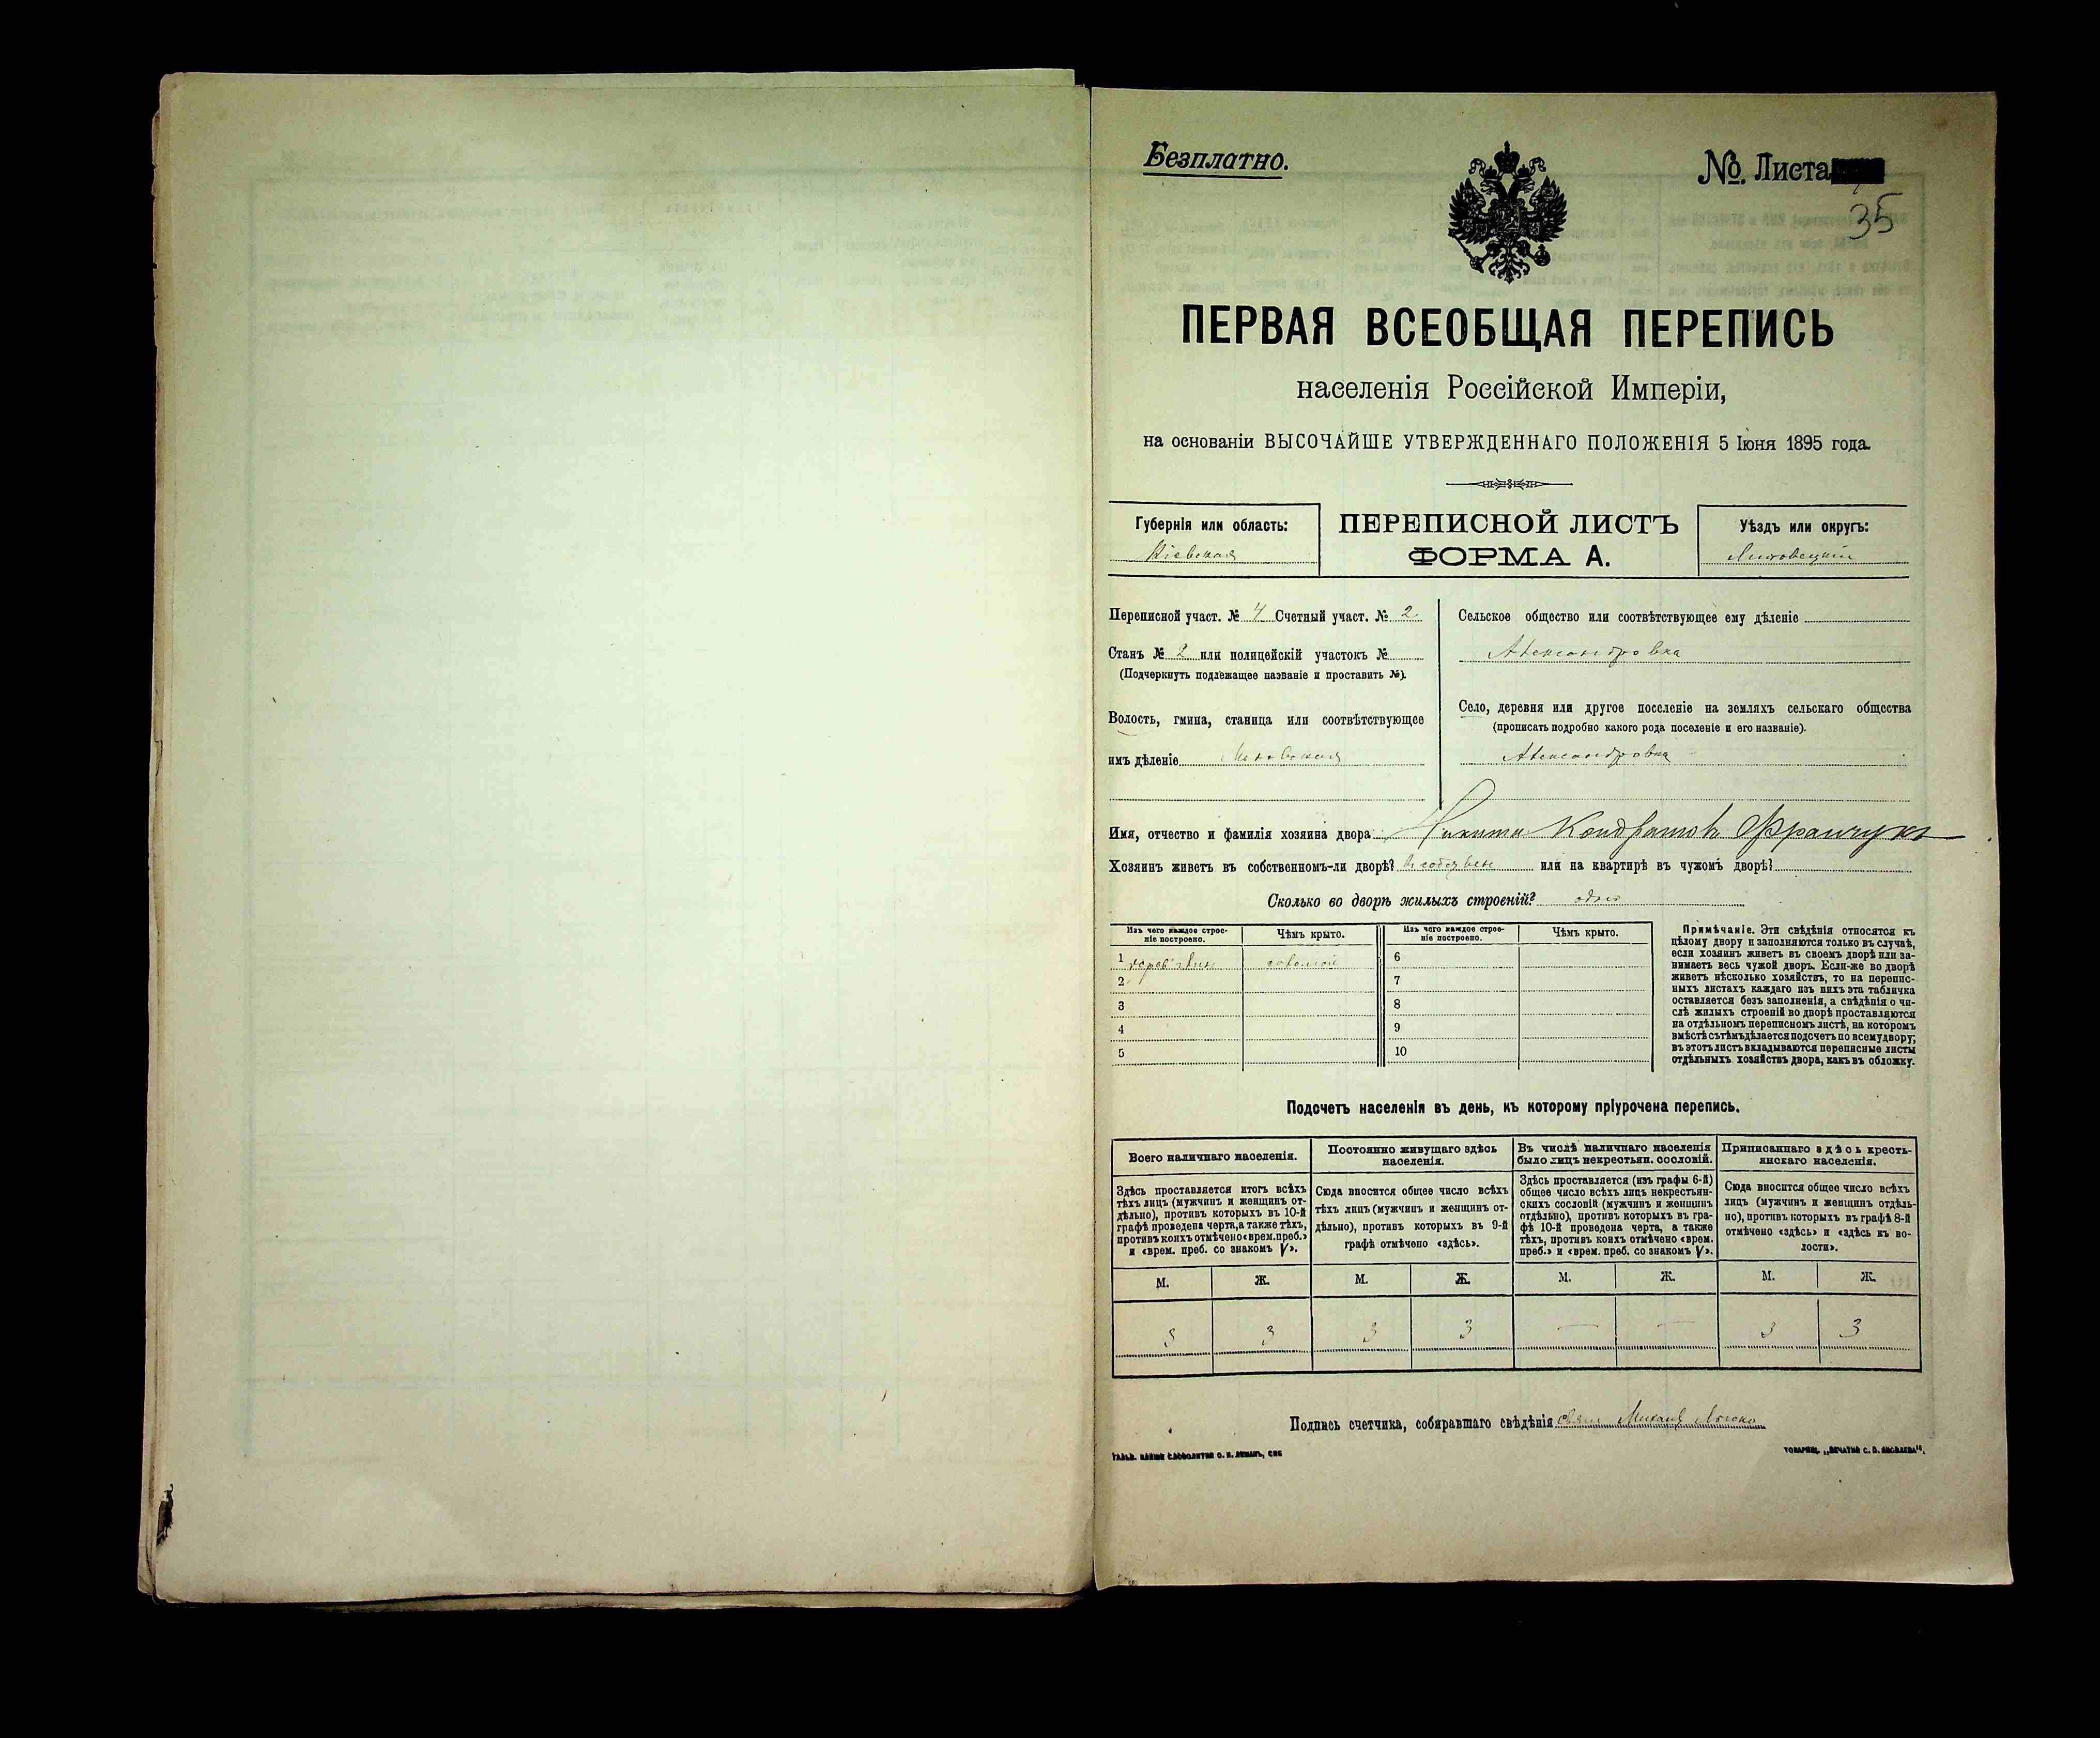 Безплатно.
№ Листа
35
ПЕРВАЯ ВСЕОБЩАЯ ПЕРЕПИСЬ
населенія Россійской Имперіи,
на основаніи ВЫСОЧАЙШЕ УТВЕРЖДЕННАГО ПОЛОЖЕНІЯ 5 Іюня 1895 года.
Губернія или область:
Кіевская
ПЕРЕПИСНОЙ ЛИСТЪ
ФОРМА А.
Уѣздъ или округъ:
Липовецкій
Переписной участ. № 4 Счетный участ. № 2
Станъ № 2 или полицейскій участокъ №
(Подчеркнуть подлежащее названіе и проставить №).
Волость, гмина, станица или соотвѣтствующее
имъ дѣленіе
Сельское общество или соотвѣтствующее ему дѣленіе
Александровка
Село, деревня или другое поселеніе на земляхъ сельскаго общества
(прописать подробно какого рода поселеніе и его названіе).
Александровка
Имя, отчество и фамилія хозяина двора Никита Кондратовъ Франчукъ
Хозяинъ живетъ въ собственномъ-ли дворѣ? в собствен или на квартирѣ въ чужомъ дворѣ?
Сколько во дворѣ жилыхъ строеній? одно
Изъ чего каждое строе-
ніе построено.
Чѣмъ крыто.
Изъ чего каждое строе-
ніе построено.
Чѣмъ крыто.
1 соломой
2
3
4
5
6
7
8
9
10
Примѣчаніе. Эти свѣдѣнія относятся къ
цѣлому двору и заполняются только въ случаѣ,
если хозяинъ живетъ въ своемъ дворѣ или за-
нимаетъ весь чужой дворъ. Если-же во дворѣ
живетъ нѣсколько хозяйствъ, то на перепис-
ныхъ листахъ каждаго изъ нихъ эта табличка
оставляется безъ заполненія, а свѣдѣнія о чи-
слѣ жилыхъ строеній во дворѣ проставляются
на отдѣльномъ переписномъ листѣ, на которомъ
вмѣстѣ съ тѣмъ дѣлается подсчетъ по всему двору;
въ этотъ листъ вкладываются переписные листы
отдѣльныхъ хозяйствъ двора, какъ въ обложку.
Подсчетъ населенія въ день, къ которому пріурочена перепись.
Всего наличнаго населенія.
Здѣсь проставляется итогъ всѣхъ
тѣхъ лицъ (мужчинъ и женщинъ от-
дѣльно), противъ которыхъ въ 10-й
графѣ проведена черта, а также тѣхъ,
противъ коихъ отмѣчено «врем. преб.»
и «врем. преб. со знакомъ V».
Постоянно живущаго здѣсь
населенія.
Сюда вносится общее число всѣхъ
тѣхъ лицъ (мужчинъ и женщинъ от-
дѣльно), противъ которыхъ въ 9-й
графѣ отмѣчено «здѣсь».
Въ числѣ наличнаго населенія
было лицъ некрестьян. сословій.
Здѣсь проставляется (изъ графы 6-й)
общее число всѣхъ лицъ некрестьян-
скихъ сословій (мужчинъ и женщинъ
отдѣльно), противъ которыхъ въ гра-
фѣ 10-й проведена черта, а также
тѣхъ, противъ коихъ отмѣчено «врем.
преб.» и «врем. преб. со знакомъ V».
Приписаннаго здѣсь кресть-
янскаго населенія.
Сюда вносится общее число всѣхъ
лицъ (мужчинъ и женщинъ отдѣль-
но), противъ которыхъ въ графѣ 8-й
отмѣчено «здѣсь» и «здѣсь къ во-
лости».
М. Ж. М. Ж. М. Ж. М. Ж.
3 3 3 3 — — 3 3
Подпись счетчика, собиравшаго свѣдѣнія Михаил